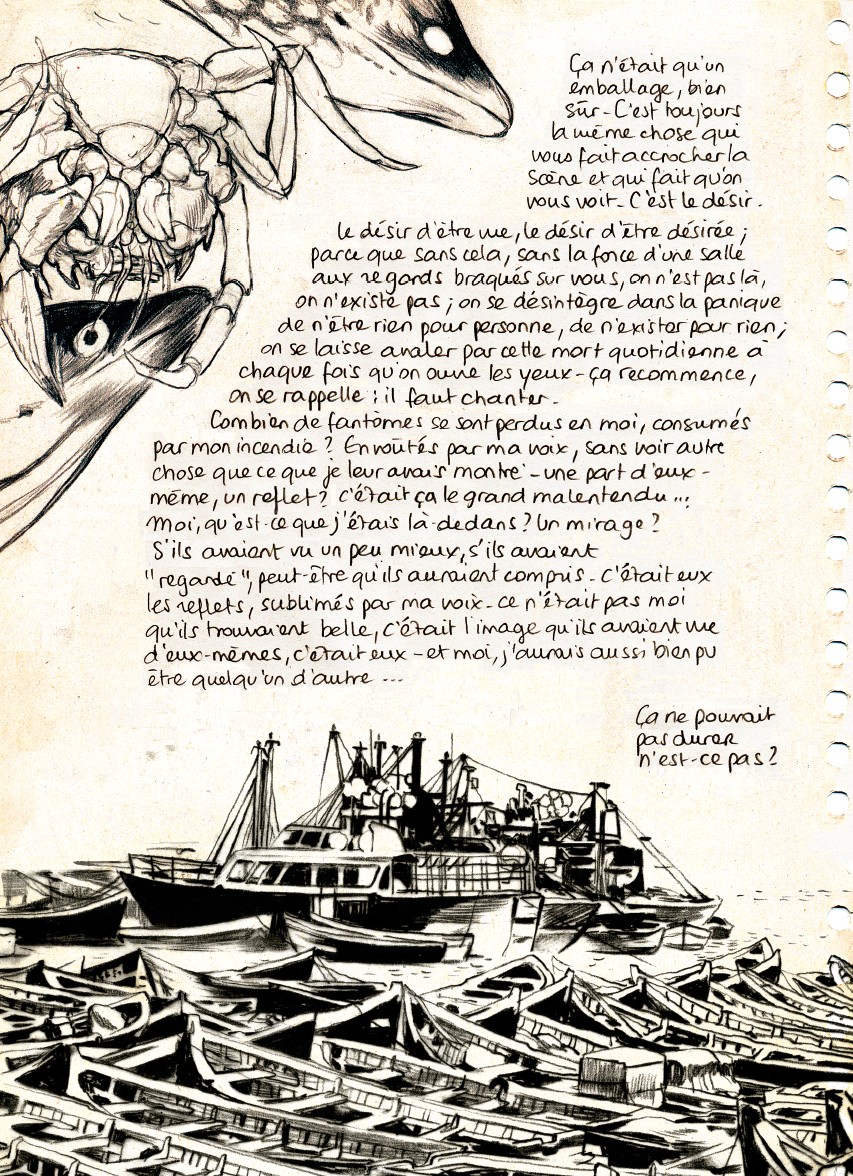 Ça n'était qu'un
emballage, bien
sûr - C'est toujours
la même chose qui
vous fait accrocher la
scène et qui fait qu'on
vous voit - C'est le désir.
le désir d'être vue, le désir d'être désirée ;
parce que sans cela, sans la force d'une salle
aux regards braqués sur vous, on n'est pas là,
on n'existe pas ; on se désintègre dans la panique
de n'être rien pour personne, de n'exister pour rien ;
on se laisse avaler par cette mort quotidienne à
chaque fois qu'on ouvre les yeux - ça recommence,
on se rappelle : il faut chanter.
Combien de fantômes se sont perdus en moi, consumés
par mon incendie ? Envoûtés par ma voix, sans voir autre
chose que ce que je leur avais montré - une part d'eux-
même, un reflet ? c'était ça le grand malentendu...
Moi, qu'est-ce que j'étais là-dedans ? Un mirage ?
S'ils avaient vu un peu mieux, s'ils avaient
"regardé", peut-être qu'ils auraient compris - C'était eux
les reflets, sublimés par ma voix - ce n'était pas moi
qu'ils trouvaient belle, c'était l'image qu'ils avaient vue
d'eux-mêmes, c'était eux - et moi, j'aurais aussi bien pu
être quelqu'un d'autre ...
Ça ne pouvait
pas durer
n'est-ce pas ?